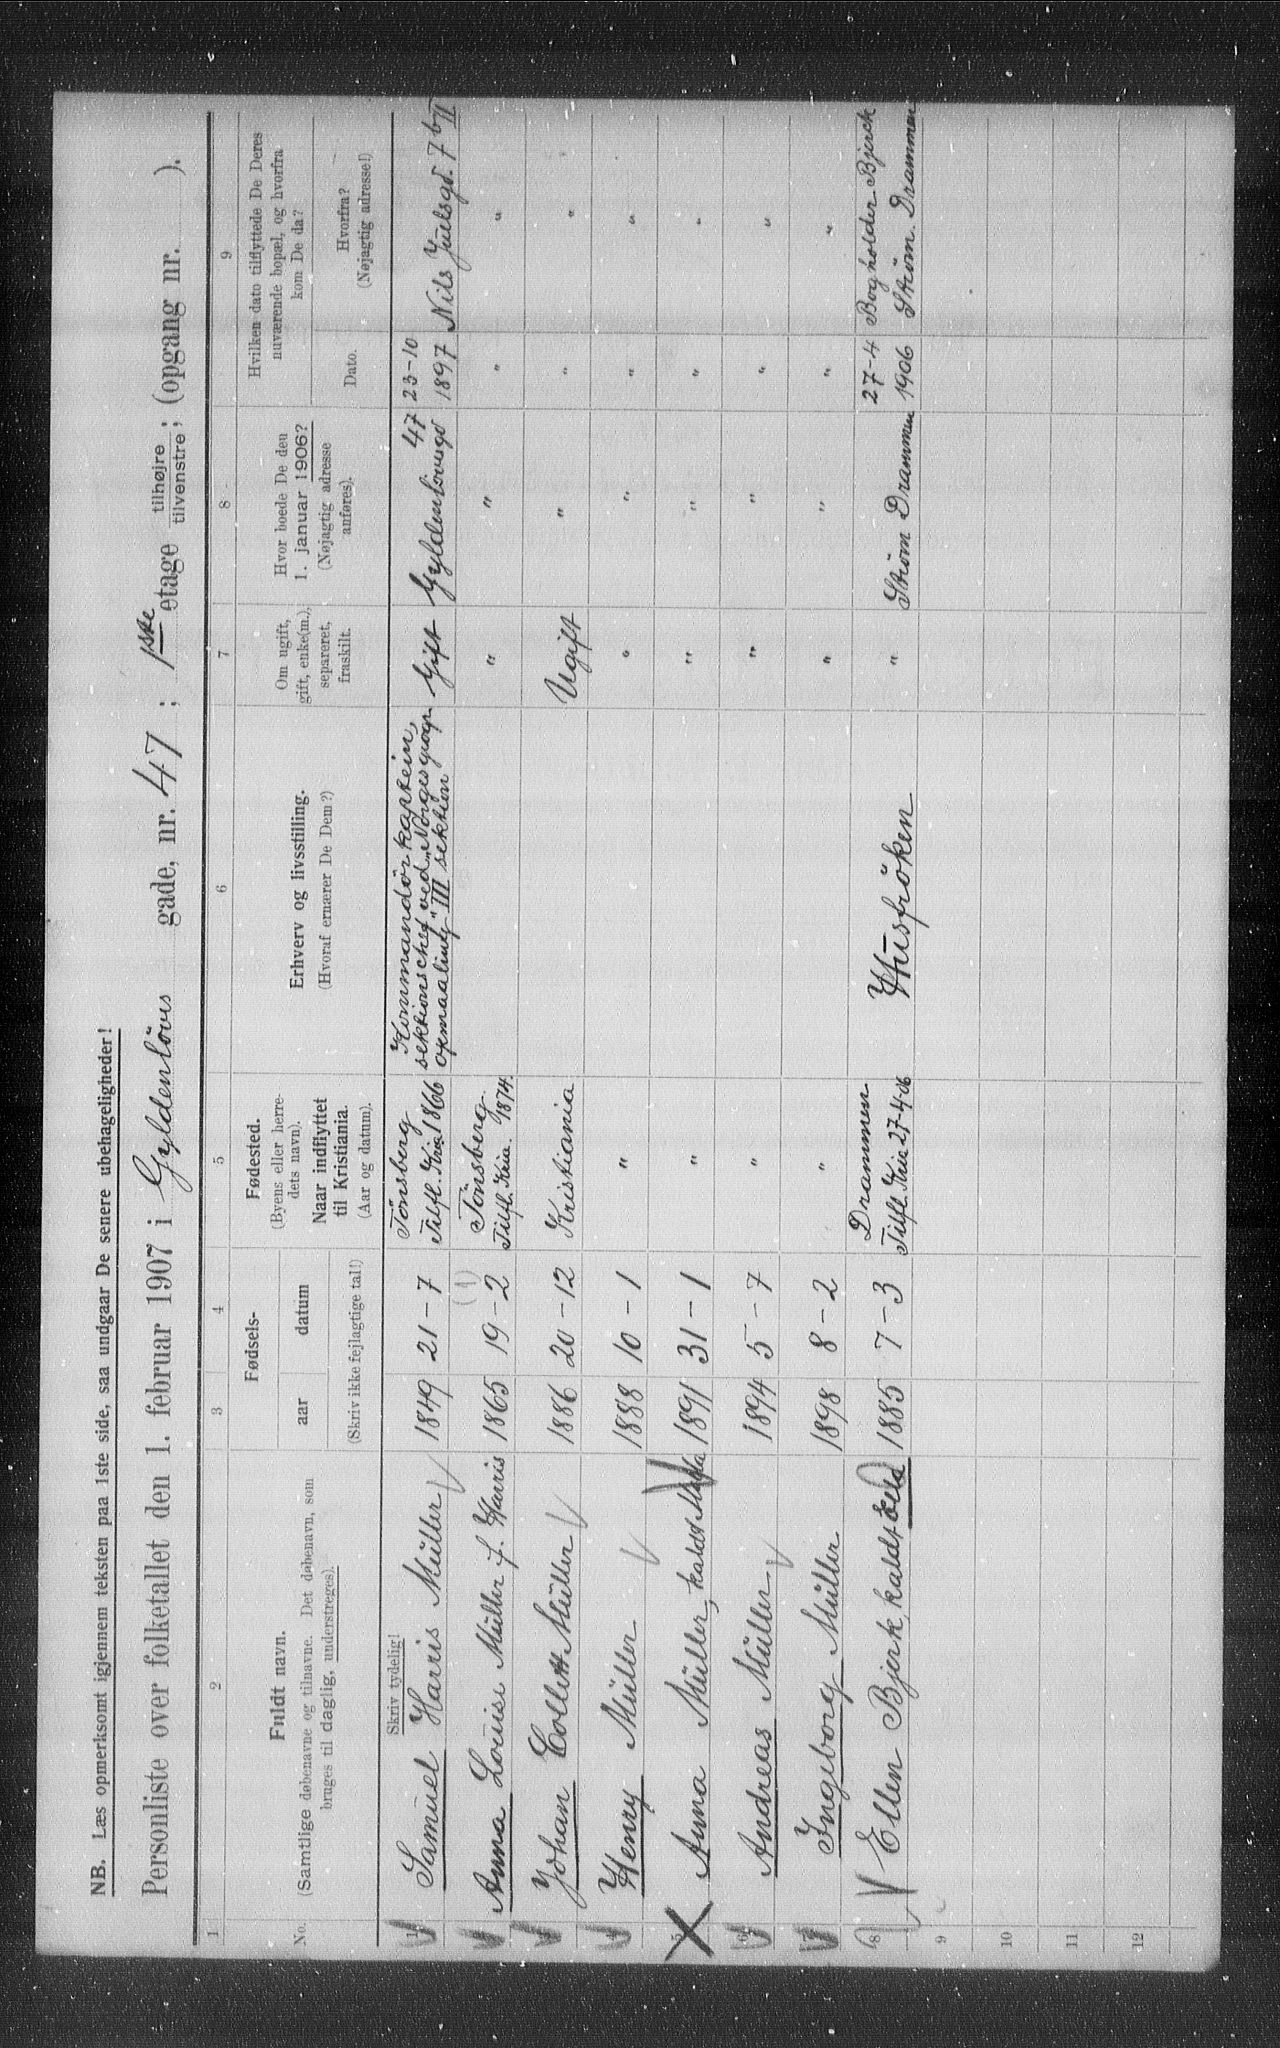 NB. Læs opmerksomt igjennem teksten paa 1ste side, saa undgaar De senere ubehageligheder!
Personliste over folketallet den 1. februar 1907 i Gyldenlövs gade, nr. 47 ; 1ste etage tilhøjre tilvenstre; (opgang nr. ).
1 2 3 4 5 6 7 8 9
No.
Fuldt navn.
(Samtlige døbenavne og tilnavne. Det døbenavn, som
bruges til daglig, understreges).
Fødsels-
aar datum
(Skriv ikke fejlagtige tal!)
Fødested.
(Byens eller herre-
dets navn).
Naar indflyttet
til Kristiania.
(Aar og datum).
Erhverv og livsstilling.
(Hvoraf ernærer De Dem?)
Om ugift,
gift, enke(m.),
separeret,
fraskilt.
Hvor boede De den
1. januar 1906?
(Nøjagtig adresse
anføres).
Hvilken dato tilflyttede De Deres
nuværende bopæl, og hvorfra
kom De da?
Dato.
Hvorfra?
(Nøjagtig adresse!)
Skriv tydelig!
1 Samuel Harris Müller 1849 21-7 Tönsberg Tilfl. Kria 1866 Kommandörkaptein, sektionschef ved "Norges geogr. opmaaling" III sektion Gift Gyldenlövesgd 47 23-10 1897 Nils Juelsgd. 7 b II
2 Anna Louise Müller f. Harris 1865 19-2 (1) Tönsberg Tilfl. Kria. 1874. " " " "
3 Johan Collett Müller 1886 20-12 Kristiania Ugift " " "
4 Henry Müller 1888 10-1 " " " " "
5 Anna Müller, kaldt 1891 31-1 " " " " "
6 Andreas Müller 1894 5-7 " " " " "
7 Ingeborg Müller 1898 8-2 " " " " "
8 Ellen Bjerk, kaldt 1885 7-3 Drammen Tilfl. Kria 27-4-06 Husfröken " Ström Drammen 27-4 1906 Bogholder Bjerck Ström. Drammen
9
10
11
12